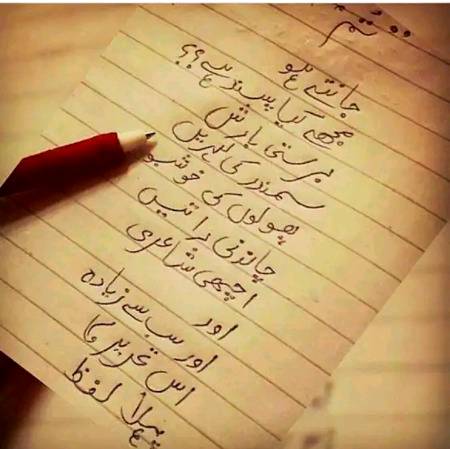 تم
جانتے ہو
مجھے کیا پسند ہے؟؟
برستی بارش
سمندر کی لہریں
پھولوں کی خوشبو
چاندنی راتیں
اچھی شاعری
اور
اور سب سے زیادہ
اس تحریر کا
پہلا لفظ